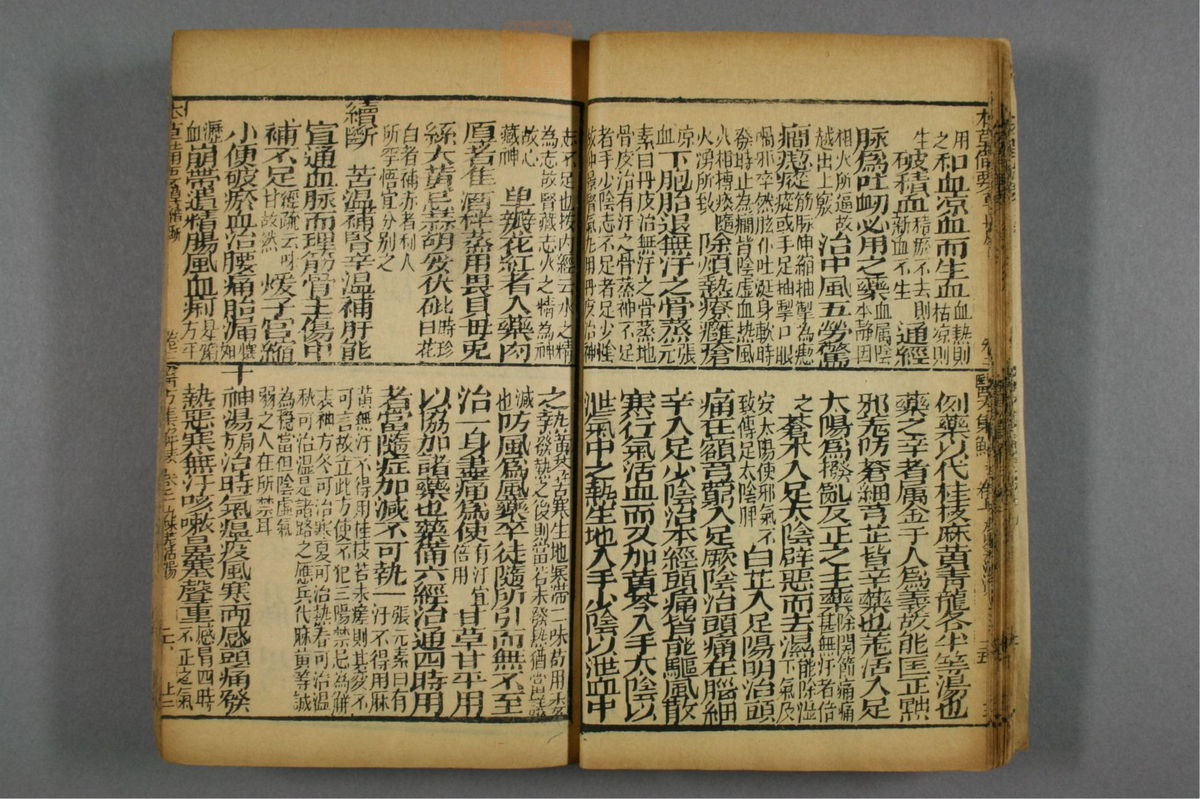 用之和血凉血而生血血熱則枯凉則
生破積血積瘀不去則新血不生通經
脉為吐衄必用之藥血屬陰本靜因
相火所逼故越出上竅治中風五勞驚
癇瘛瘲筋脉伸縮抽掣為瘛瘲或手足抽掣口眼
喎邪卒然眩仆吐涎身軟時發時止為癇皆陰虛血熱風
火相搏痰隨火湧所致除煩熱療癰瘡
凉血下胞胎退無汗之骨蒸張元
素曰丹皮治無汗之骨蒸地骨皮治有汗之骨蒸神不足
者手少陰志不足者足少陰故仲景腎氣丸用丹皮治神
志不足也按內經云水之精為志故腎藏志火之情為神
故心藏神單瓣花紅者入藥肉
厚者隹酒拌蒸用畏貝母兎
絲大黃忌蒜胡荽伏砒時珍曰花
白者補赤者利人所罕悟宜分別之
續斷 苦溫補腎辛溫補肝能
宣通血脉而理筋骨主傷中
補不足經疏云味甘故然煖子宮縮
小便破瘀血治腰痛胎漏
瀝血崩帶遺精腸風血痢
例藥以代桂枝麻黃青龍各半等湯也
藥之辛者屬金于人為義故能匡正黜
邪羌防蒼細芎芷皆辛藥也羌活入足
太陽為撥亂反正之主藥除關節痛痛甚無汗者倍
之蒼朮入足太陰辟惡而去濕能除濕下氣及
安太陽使邪氣不致傳足太陰脾白芷入足陽明治頭
痛在額芎藭入足厥陰治頭痛在腦細
辛入足少陰治本經頭痛皆能驅風散
寒行氣活血而又加黃芩入手太陰以
泄氣中之熱生地入手少陰以泄血中
之熱黃芩苦寒生地寒滯二味苟用於發熱之後則當若未發熱猶當議
減也防風為風藥卒徒隨所引而無不至
治一身盡痛為使有汗宜倍用甘草甘平用
以協加諸藥也藥備六經治通四時用
者當隨症加減不可執一張元素曰有汗不得用麻
黃無汗不得用桂枝若未瘥則其變不可言故立此方使不犯三陽禁忌為解
表神方冬可治寒夏可治熱春可治溫秋可治濕是諸路之應兵代麻黃等誠
為穩當但陰虛氣弱之人在所禁耳
十神湯局方治時氣瘟疫風寒兩感頭痛發
熱惡寒無汗咳嗽鼻塞聲重感冒四時不正之氣